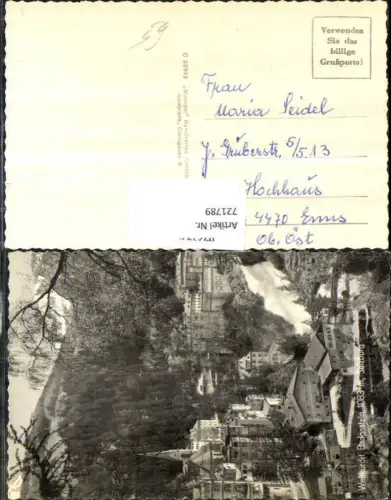 Verwenden
Sie das
billige
Grußporto!
59
Frau
Maria Seidel
J. Gruberstr. 5/5.13
Hochhaus
4470 Enns
Ob. Öst
Artikel Nr.
721789
Weltkurort Badgastein 1083 m,